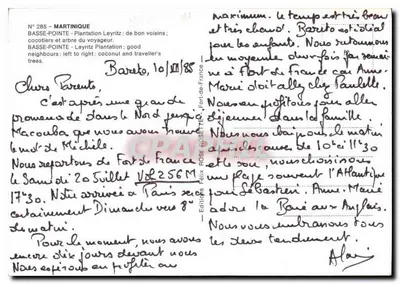 N° 285 - MARTINIQUE
BASSE-POINTE - Plantation Leyritz : de bon voisins ;
cocotiers et arbre du voyageur.
BASSE-POINTE - Leyritz Plantation : good
neighbours : left to right : coconut and traveller's
trees.
Bareto, 10/VII/85
Chers Parents,
C'est après une grande
promenade dans le Nord jusqu'à
Macouba que nous avons trouvé
le mot de Michèle.
Nous repartons de Fort de France
le Samedi 20 Juillet Vol 256M
17h30. Notre arrivée à Paris sera
certainement Dimanche vers 8h
du matin.
Pour le moment, nous avons
encore dix jours devant nous
Nous espérons en profiter au
maximum. le temps est très beau
et très chaud. Bareto est idéal
pour les enfants. Nous retournons
en moyenne une fois par semaine
à Fort de France car Anne-
Marie doit aller chez Paulette.
Nous en profitons pour aller
déjeuner dans la famille
Nous nous baignons le matin
de 10h à 11h30
et le soir, nous choisissons
une plage souvent l'Atlantique
Anne-Marie
adore la Baie aux Anglais.
Nous vous embrassons tous
les deux tendrement.
Alain